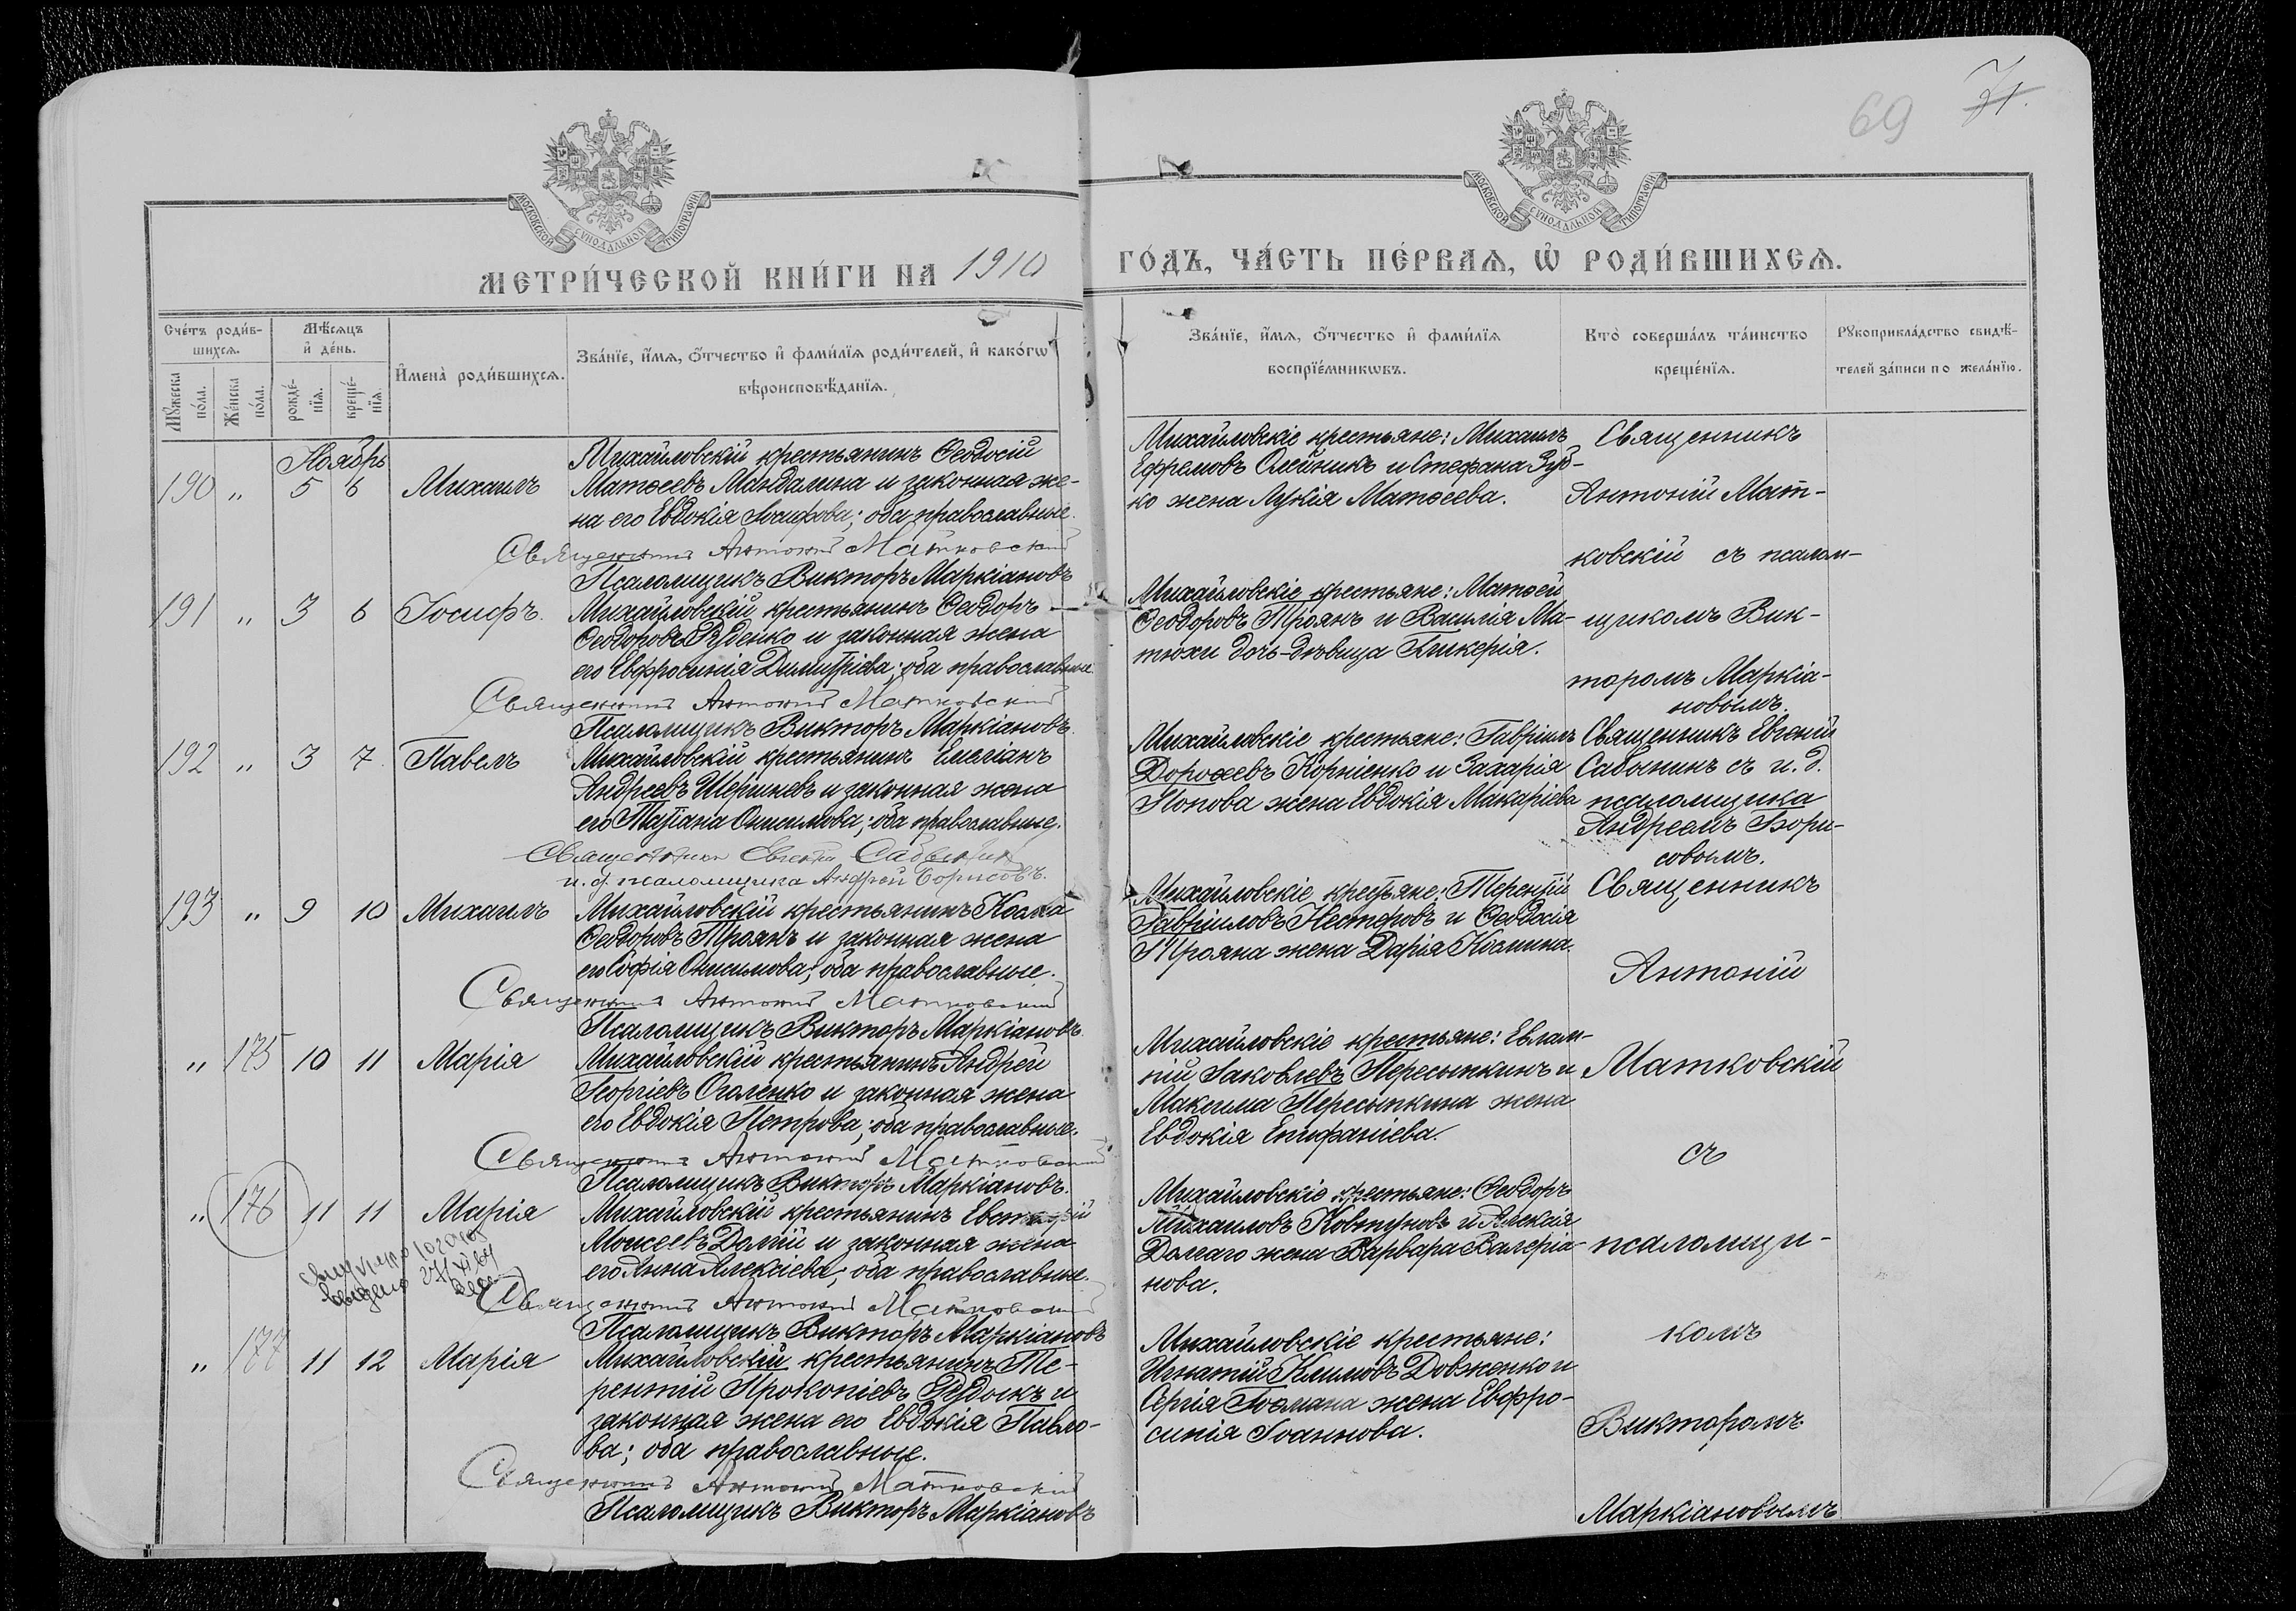 69
71.
МОСКОВСКОЙ СѴНОДАЛЬНОЙ ТИПОГРАФІИ
МОСКОВСКОЙ СѴНОДАЛЬНОЙ ТИПОГРАФІИ
МЕТРИ́ЧЕСКОЙ КНИ́ГИ НА 1910
ГО́ДЪ, ЧА́СТЬ ПЕ́РВАѦ, Ѡ҆ РОДИ́ВШИХСѦ.
Сче́тъ роди́в-
шихсѧ.
Мꙋ́жеска по́ла.
Же́нска по́ла.
Мѣ́сѧцъ
и҆ де́нь.
рожде́-
нїѧ.
креще́-
нїѧ
И҆мена̀ роди́вшихсѧ.
Зва́нїе, и҆́мѧ, ѻ҆́тчество и҆ фами́лїѧ роди́телей, и҆ како́гѡ
вѣроисповѣ́данїѧ.
Зва́нїе, и҆́мѧ, ѻ҆́тчество и҆ фами́лїѧ
воспрїе́мникѡвъ.
Кто̀ соверша́лъ та́инство
креще́нїѧ.
Рꙋкоприкла́дство свидѣ́-
телей за́писи по жела́нїю.
Ноябрь
190 " 5 6 Михаилъ
Михайловскій крестьянинъ Ѳеодосій
Матѳеевъ Мандалина и законная же-
на его Евдокія Іосифова; оба православные.
Священникъ Антоній Матковскій
Псаломщикъ Викторъ Маркіановъ
Михайловскіе крестьяне: Михаилъ
Ефремовъ Олейникъ и Стефана Зуб-
ко жена Лукія Матѳеева.
Священникъ
Антоній Мат-
ковскій съ псалом-
щикомъ Вик-
торомъ Маркіа-
новымъ.
191 " 3 6 Іосифъ.
Михайловскій крестьянинъ Ѳеодоръ
Ѳеодоровъ Руденко и законная жена
его Евфросинія Димитріева; оба православные.
Священникъ Антоній Матковскій
Псаломщикъ Викторъ Маркіановъ.
Михайловскіе крестьяне: Матѳей
Ѳеодоровъ Троянъ и Василія Ма-
тюхи дочь-дѣвица Гликерія.
192 " 3 7. Павелъ
Михайловскій крестьянинъ Емеліанъ
Андреевъ Шершневъ и законная жена
его Татіана Онисимова; оба православные.
Священникъ Евгеній Сабынин
и. д. псаломщика Андрей Борисовъ.
Михайловскіе крестьяне: Гавріилъ
Дороѳеевъ Корніенко и Захарія
Попова жена Евдокія Макаріева
Священникъ Евгеній
Сабынинъ съ и. д.
псаломщика
Андреемъ Бори-
совымъ.
193 " 9 10 Михаилъ
Михайловскій крестьянинъ Косма
Ѳеодоровъ Троянъ и законная жена
его Софія Онисимова; оба православные.
Священникъ Антоній Матковскій
Псаломщикъ Викторъ Маркіановъ
Михайловскіе крестьяне: Терентій
Гавріиловъ Нестеровъ и Ѳеодосія
Трояна жена Дарія Космина.
Священникъ
Антоній
Матковскій
съ
псаломщи-
комъ
Викторомъ
Маркіановымъ
" 175 10 11 Марія
Михайловскій крестьянинъ Андрей
Георгіевъ Оголенко и законная жена
его Евдокія Петрова; оба православные.
Священникъ Антоній Матковскій
Псаломщикъ Викторъ Маркіановъ.
Михайловскіе крестьяне: Евлам-
пій Іаковлевъ Пересыпкинъ и
Максима Пересыпкина жена
Евдокія Епифаніева.
" 176 11 11 Марія
Михайловскій крестьянинъ Евстафій
Моисеевъ Долгій и законная жена
его Анна Алексіева; оба православные.
Священникъ Антоній Матковскій
Псаломщикъ Викторъ Маркіановъ
Михайловскіе крестьяне: Ѳеодоръ
Михаиловъ Ковтуновъ и Алексія
Долгаго жена Варвара Валеріа-
нова.
" 177 11 12 Марія
Михайловскій крестьянинъ Те-
рентій Прокопіевъ Рудокъ и
законная жена его Евдокія Павло-
ва; оба православные.
Священникъ Антоній Матковскій
Псаломщикъ Викторъ Маркіановъ
Михайловскіе крестьяне:
Игнатій Климовъ Довженко и
Сергія Гоомана жена Евфро-
синія Іоаннова.